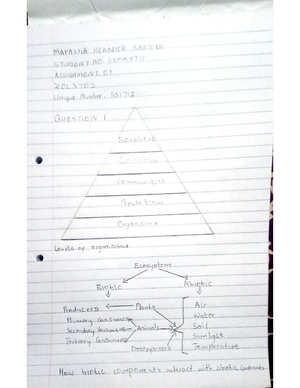 MAPASHA HENDRICK SANFORD
STUDENT NO. 
ASSIGNMENT 01
BCL3702
Unique Number:
QUESTION 1
Biosphere
Ecosystem
Communities
Populations
Organisms
Levels of organisations
Ecosystem
Biotic
Abiotic
Producers
Plants
Air
Primary Consumers
Water
Secondary Consumers
Animals
Soil
Tertiary Consumers
Sunlight
Decomposers
Temperature
How biotic components interact with abiotic components